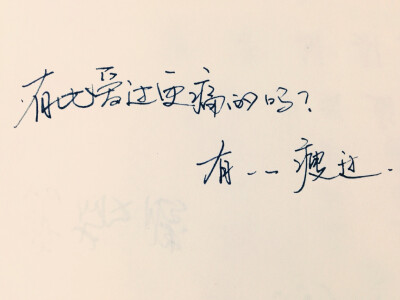 有比爱过更痛的吗？
有--瘦过.